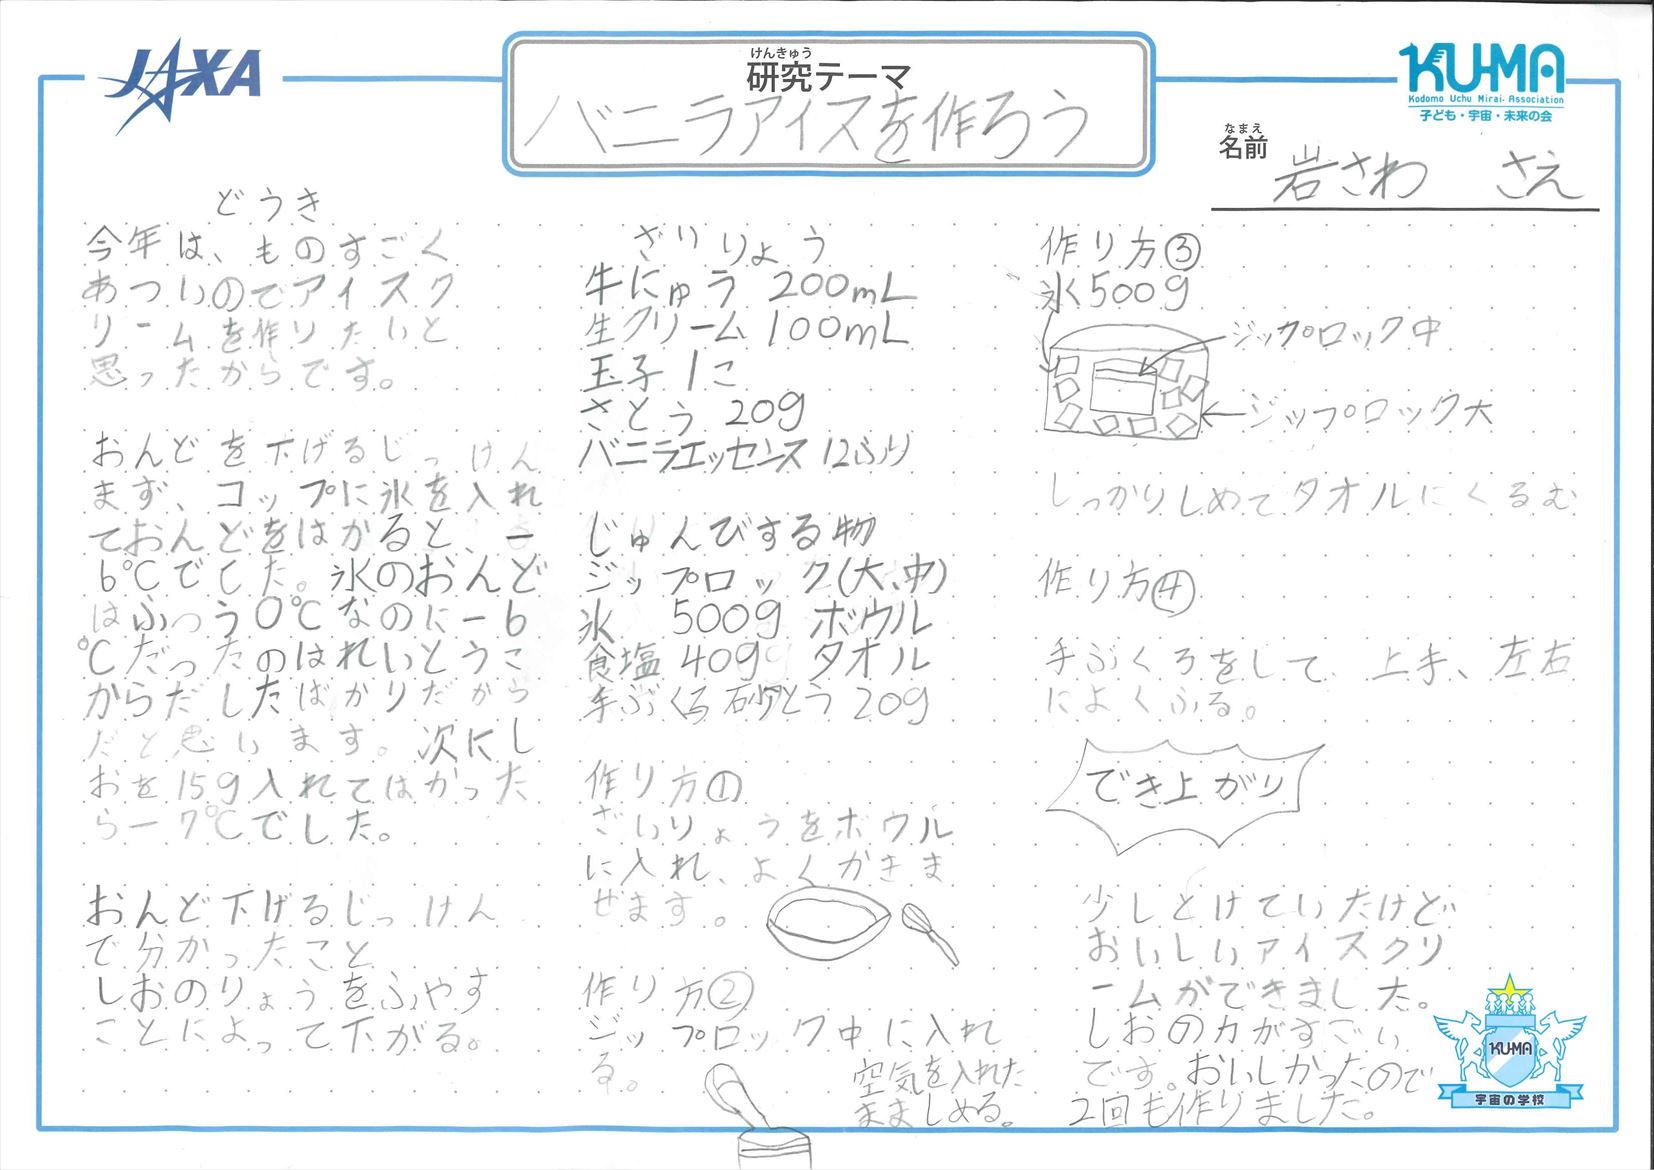 JAXA
けんきゅう
研究テーマ
バニラアイスを作ろう
KU-MA
Kodomo Uchu Mirai Association
子ども・宇宙・未来の会
なまえ
名前
岩さわ さえ
どうき
今年は、ものすごく
あついのでアイスク
リームを作りたいと
思ったからです。
おんどを下げるじっけん
まず、コップに氷を入れ
ておんどをはかると、ー
6℃でした。氷のおんど
はふつう0℃なのにー6
℃だったのはれいとうこ
からだしたばかりだから
だと思います。次にし
おを15g入れてはかった
らー7℃でした。
おんど下げるじっけん
で分かったこと
しおのりょうをふやす
ことによって下がる。
ざいりょう
牛にゅう 200mL
生クリーム 100mL
玉子 1こ
さとう 20g
バニラエッセンス 12ふり
じゅんびする物
ジップロック(大、中)
氷 500g ボウル
食塩 40g タオル
手ぶくろ 砂とう 20g
作り方①
ざいりょうをボウル
に入れ、よくかきま
せます。
作り方②
ジップロック中に入れ
る。
空気を入れた
まましめる。
作り方③
氷500g
ジップロック中
ジップロック大
しっかりしめてタオルにくるむ
作り方④
手ぶくろをして、上手、左右
によくふる。
でき上がり
少しとけていたけど
おいしいアイスクリ
ームができました。
しおの力がすごい
です。おいしかったので
2回も作りました。
KU-MA
宇宙の学校